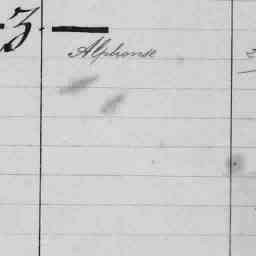 3 —
Alphonse